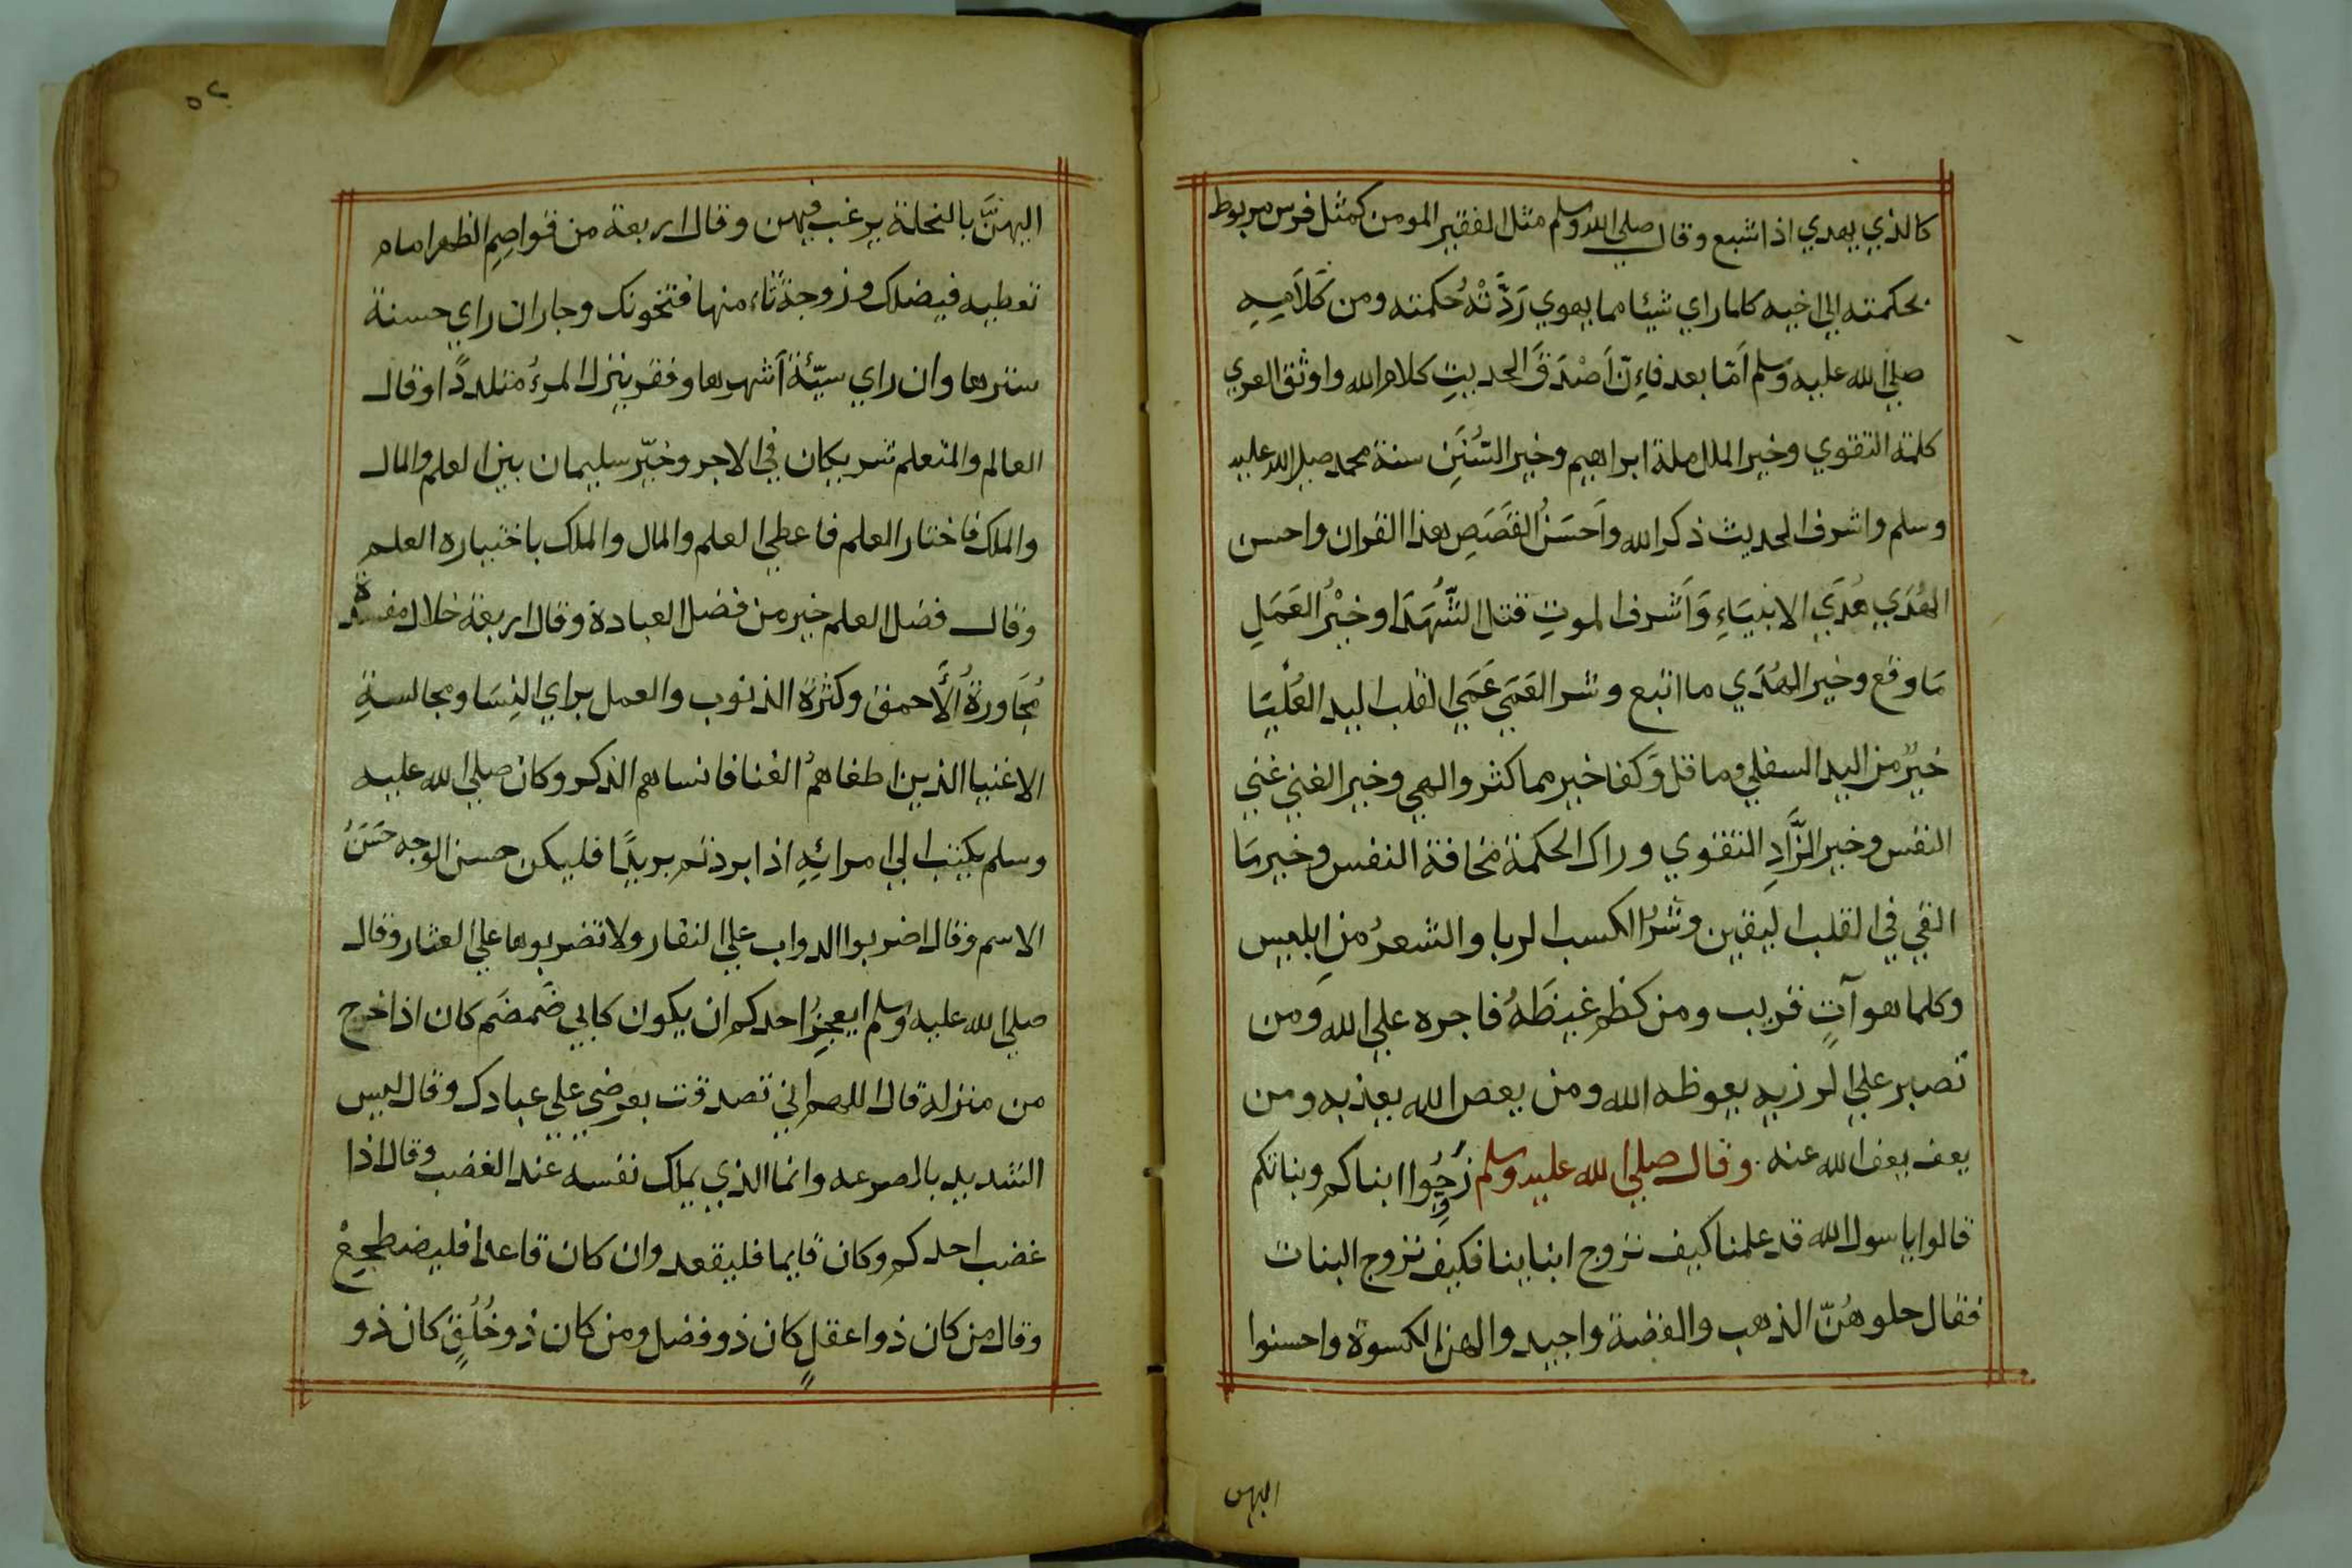 كالذي يهدي اذا شبع وقال صلي الله وسلم مثل الفقير المومن كمثل فرس مربوط
بحكمته الي اخيه كلما راي شيئا مما يهوي رَدَّتْهُ حُكمته ومن كَلَامِهِ
صلي الله عليه وسلم اَمّا بعد فاِنّ اَصْدَقَ الحديثِ كلام الله واوثق العري
كلمة التقوي وخير الملل ملة ابراهيم وخير السُّنَنِ سنة محمد صلي الله عليه
وسلم واشرف الحديث ذكر الله واَحسَنُ القَصَصِ هذا القران واحسن
الهُدَي هُدَي الانبيَاءِ وَاَشرف الموتِ قتل الشُّهَدَا وخَيْرُ العَمَلِ
مَا وقع وخير الهُدَي ما اتبع وشر العَمَي عَمَي القلب اليد العُلْيَا
خيرٌ من اليد السفلي وما قل وَكفا خير مما كثر والهي وخير الغني غني
النفس وخير الزَّادِ التقوي وراك الحكمة مخافة النفس وخير مَا
القي في القلب اليقين وشرُّ الكسب الربا والشعرُ منِ ابليس
وكلما هو آتٍ قريب ومن كظم غيظَهُ فاجره علي الله وَمن
تصبر علي الرزيه يعوظه الله ومن يعص الله يعذبه ومن
يعف يعف الله عنه. وقال صلي الله عليه وسلم زُوِّجُوا ابناكم وبناتكم
قالوا يا سول الله قد علمنا كيف نزوج ابناينا فكيف نزوج البنات
فقال حلوهُنّ الذهب والفضة واجيدوا لهن الكسوة واحسنوا
اليهن
٥٢
اليهنَّ بالنحلة يرغب فيهن وقال اربعة من قواصِمِ الظهر امام
تعطيه فيضلك وزوجة تَاءمنها فتخونك وجار ان راي حسنة
سترها وان راي سيّئة اَشهرها وفقر ينزك المرءُ متلددًا وقال
العالم والمتعلم شريكان في الاجر وخيّر سليمان بين العلم والمال
والملك فاختار العلم فاعطي العلم والمال والملك باختياره العلم
وقال فضل العلم خير من فضل العبادة وقال اربعة خلال مفسدة
مُجَاورةُ الاَحمق وكثرة الذنوب والعمل براي النِسَا ومجالسةِ
الاغنيا الذين اطغاهمُ الغنا فانساهم الذكر وكان صلي الله عليه
وسلم يكتب الي امرائِهِ اذا ابردتم بريدًا فليكن حسن الوجه حَسَنُ
الاسم وقال اضربوا الدواب علي النفار ولا تضربوها علي العثار وقال
صلي الله عليه وسلم ايعجِزُ احدكم ان يكون كابي ضَمضَم كان اذا خرج
من منزله قال اللهم اني تصدقت بعرضي علي عبادك وقال ليس
الشديد بالصرعه وانما الذي يملك نفسه عند الغضب وقال اذا
غضب احدكم وكان قايما فليقعد وان كان قاعدا فليضطجِعْ
وقال من كان ذوا عقلٍ كان ذو فضل ومن كان ذو خُلُقٍ كان ذو